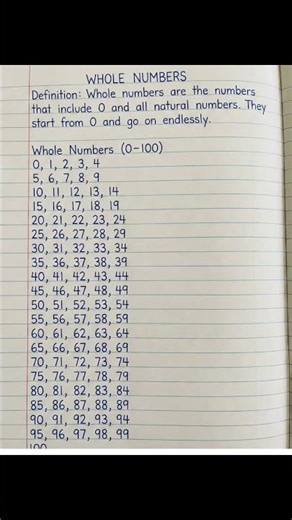 WHOLE NUMBERS
Definition: Whole numbers are the numbers
that include 0 and all natural numbers. They
start from 0 and go on endlessly.
Whole Numbers (0-100)
0, 1, 2, 3, 4
5, 6, 7, 8, 9
10, 11, 12, 13, 14
15, 16, 17, 18, 19
20, 21, 22, 23, 24
25, 26, 27, 28, 29
30, 31, 32, 33, 34
35, 36, 37, 38, 39
40, 41, 42, 43, 44
45, 46, 47, 48, 49
50, 51, 52, 53, 54
55, 56, 57, 58, 59
60, 61, 62, 63, 64
65, 66, 67, 68, 69
70, 71, 72, 73, 74
75, 76, 77, 78, 79
80, 81, 82, 83, 84
85, 86, 87, 88, 89
90, 91, 92, 93, 94
95, 96, 97, 98, 99
100